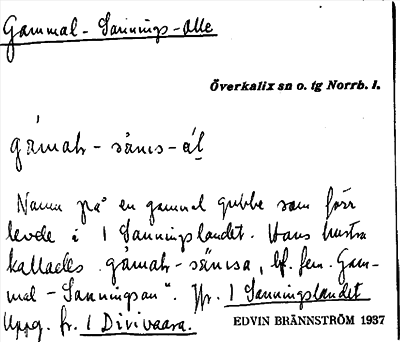 Gammal-Sannings-Olle
Överkalix sn o. tg Norrb. l.
gámaḷr-sànιs-áḷ
Namn på en gammal gubbe som förr
levde i 1 Sanningslandet. Hans hustru
kallades gàmaḷr-sànιsa, bf. fem. "Gam-
mal-Sanningsan". Jfr. 1 Sanningslandet
Uppg. fr. 1 Divivaara.
EDVIN BRÄNNSTRÖM 1937